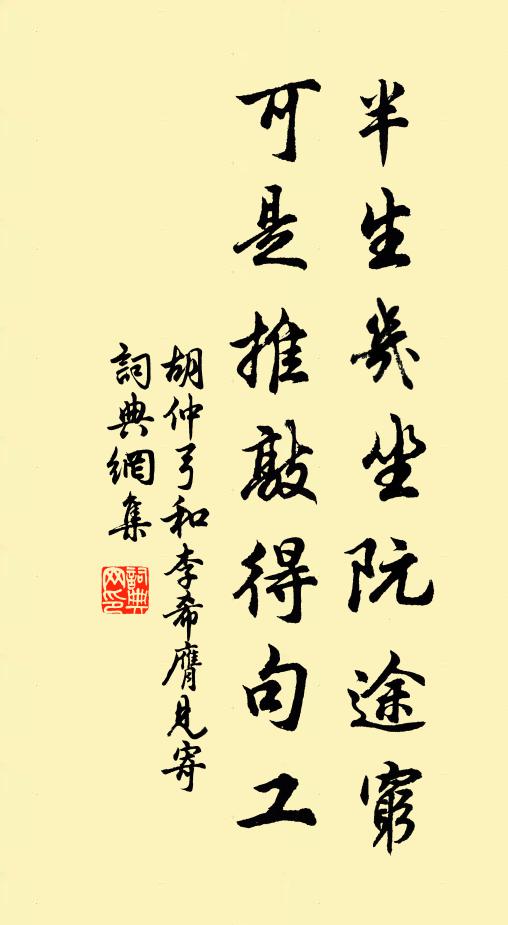 半生幾坐阮途窮
可是推敲得句工
胡仲弓和李希膺見寄
詞典網集
詞典網印